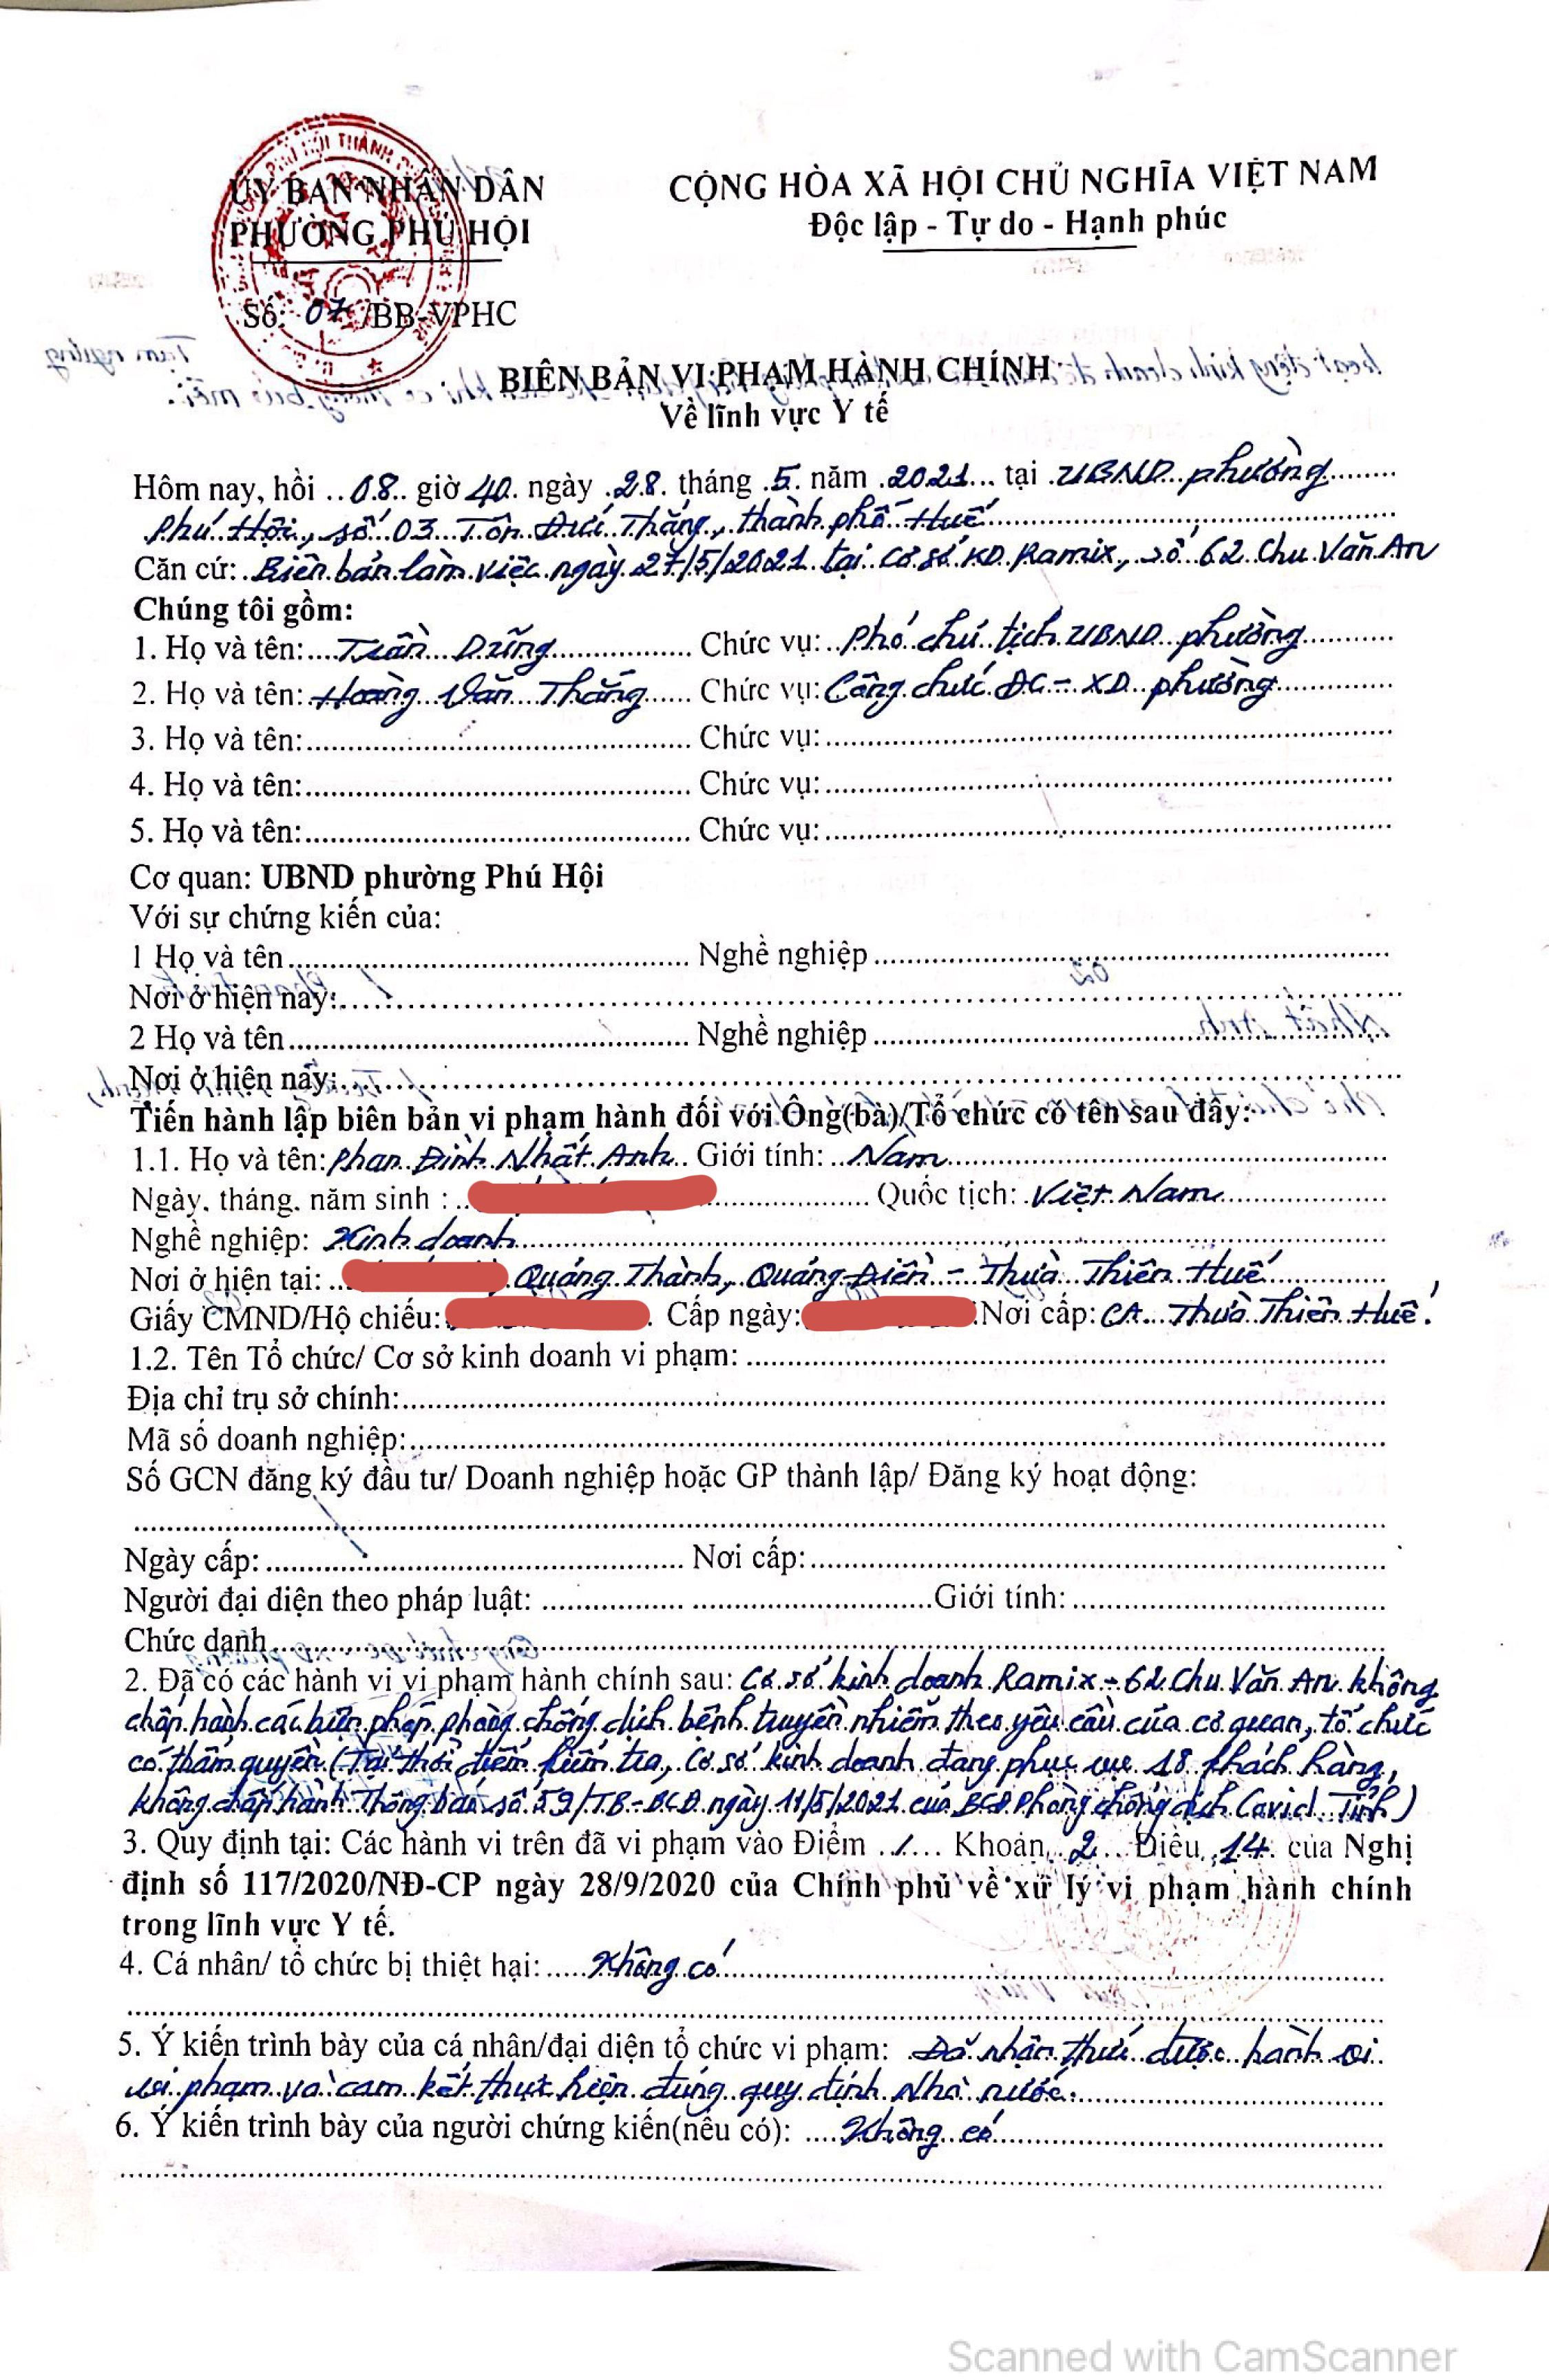 ỦY BAN NHÂN DÂN
PHƯỜNG PHÚ HỘI
Số: 07/BB-VPHC
CỘNG HÒA XÃ HỘI CHỦ NGHĨA VIỆT NAM
Độc lập - Tự do - Hạnh phúc
BIÊN BẢN VI PHẠM HÀNH CHÍNH
Về lĩnh vực Y tế
Hôm nay, hồi ..08.. giờ 40. ngày .28. tháng .5. năm .2021... tại .UBND phường.........
Phú Hội, số 03 Tôn Đức Thắng, thành phố Huế..........
Căn cứ: Biên bản làm việc ngày 27/5/2021 tại cơ sở KD Ramix, số 62 Chu Văn An
Chúng tôi gồm:
1. Họ và tên:...Trần Dũng................ Chức vụ: ..Phó chủ tịch UBND phường.........
2. Họ và tên: Hoàng Văn Thắng...... Chức vụ: Công chức ĐC - XD phường............
3. Họ và tên:........................................ Chức vụ:........................................
4. Họ và tên:........................................ Chức vụ:........................................
5. Họ và tên:........................................ Chức vụ:........................................
Cơ quan: UBND phường Phú Hội
Với sự chứng kiến của:
1 Họ và tên........................................ Nghề nghiệp........................................
Nơi ở hiện nay:........................................
2 Họ và tên........................................ Nghề nghiệp........................................
Nơi ở hiện nay:........................................
Tiến hành lập biên bản vi phạm hành đối với Ông(bà)/Tổ chức có tên sau đây:
1.1. Họ và tên: Phan Đình Nhất Anh.. Giới tính: ..Nam........................................
Ngày. tháng. năm sinh : .. ................ Quốc tịch: .Việt Nam................
Nghề nghiệp: Kinh doanh........................................
Nơi ở hiện tại: .. Quảng Thành, Quảng Điền - Thừa Thiên Huế................
Giấy CMND/Hộ chiếu: . Cấp ngày: Nơi cấp: CA Thừa Thiên Huế.
1.2. Tên Tổ chức/ Cơ sở kinh doanh vi phạm: ........................................
Địa chỉ trụ sở chính:........................................
Mã số doanh nghiệp:........................................
Số GCN đăng ký đầu tư/ Doanh nghiệp hoặc GP thành lập/ Đăng ký hoạt động:
........................................
Ngày cấp:........................................ Nơi cấp:........................................
Người đại diện theo pháp luật: ................ ................Giới tính:................
Chức danh........................................
2. Đã có các hành vi vi phạm hành chính sau: Cơ sở kinh doanh Ramix - 62 Chu Văn An không
chấp hành các biện pháp phòng chống dịch bệnh truyền nhiễm theo yêu cầu của cơ quan, tổ chức
có thẩm quyền (Tại thời điểm kiểm tra, Cơ sở kinh doanh đang phục vụ 18 khách hàng,
không chấp hành Thông báo số 59/TB-BCĐ ngày 11/5/2021 của BCĐ Phòng chống dịch Covid Tỉnh)
3. Quy định tại: Các hành vi trên đã vi phạm vào Điểm ../... Khoản..2... Điều..14. của Nghị
định số 117/2020/NĐ-CP ngày 28/9/2020 của Chính phủ về xử lý vi phạm hành chính
trong lĩnh vực Y tế.
4. Cá nhân/ tổ chức bị thiệt hại:.....Không có........................................
........................................
5. Ý kiến trình bày của cá nhân/đại diện tổ chức vi phạm: ..Đã nhận thức được hành vi
vi phạm và cam kết thực hiện đúng quy định Nhà nước.........
6. Ý kiến trình bày của người chứng kiến(nếu có): ....Không có........................
........................................
Scanned with CamScanner